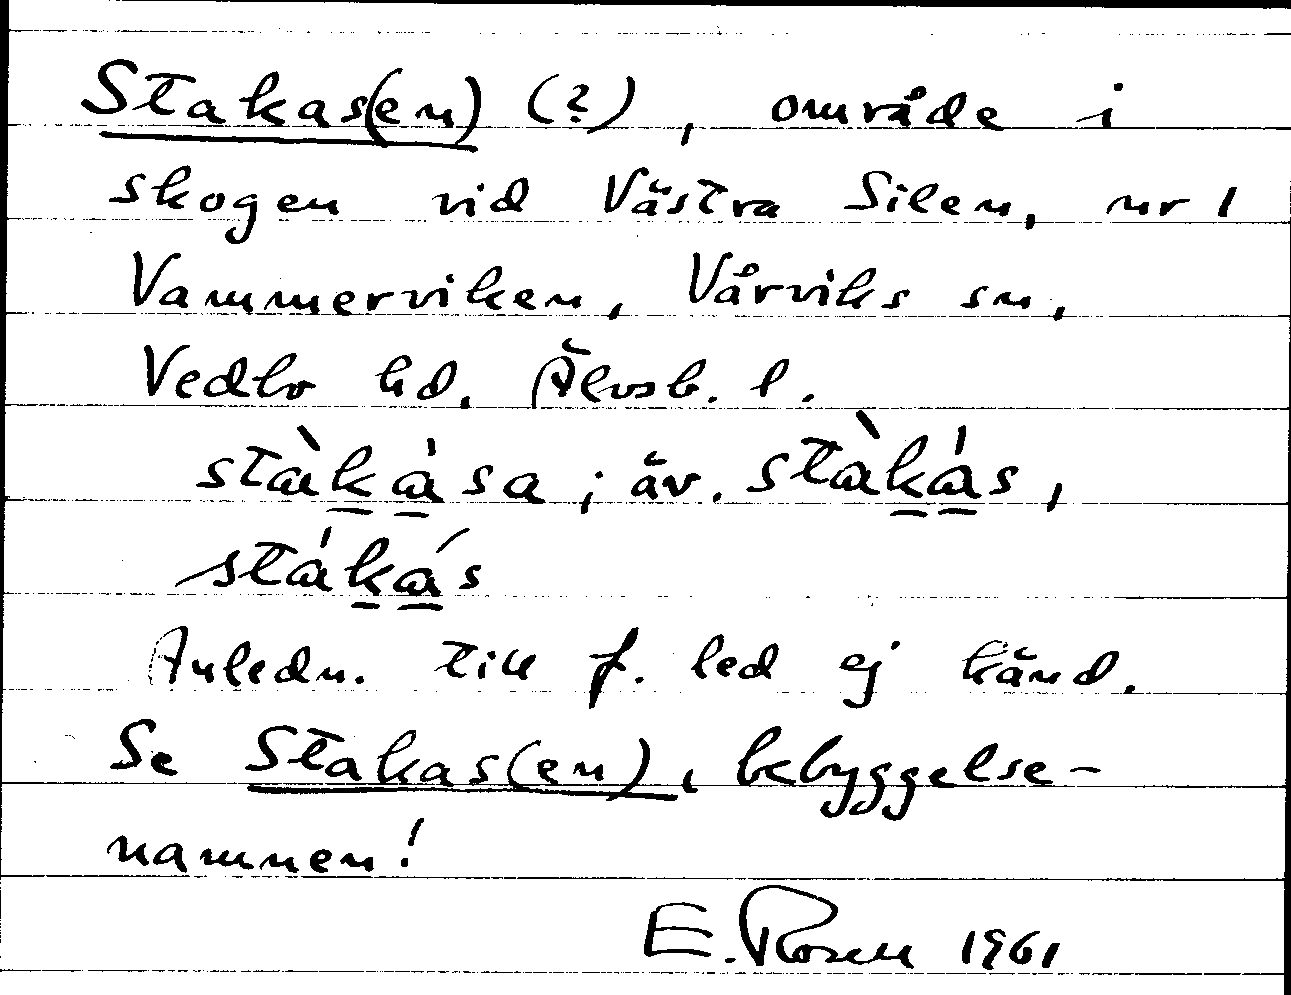 Stakas(en) (?), område i
skogen vid Västra Silen, nr 1
Vammerviken, Vårviks sn,
Vedbo hd. Älvsb. l.
stàkása; äv. stàkás,
stákás
Anledn. till f. led ej känd.
Se Stakas(en), bebyggelse-
namnen!
E. Rosen 1961